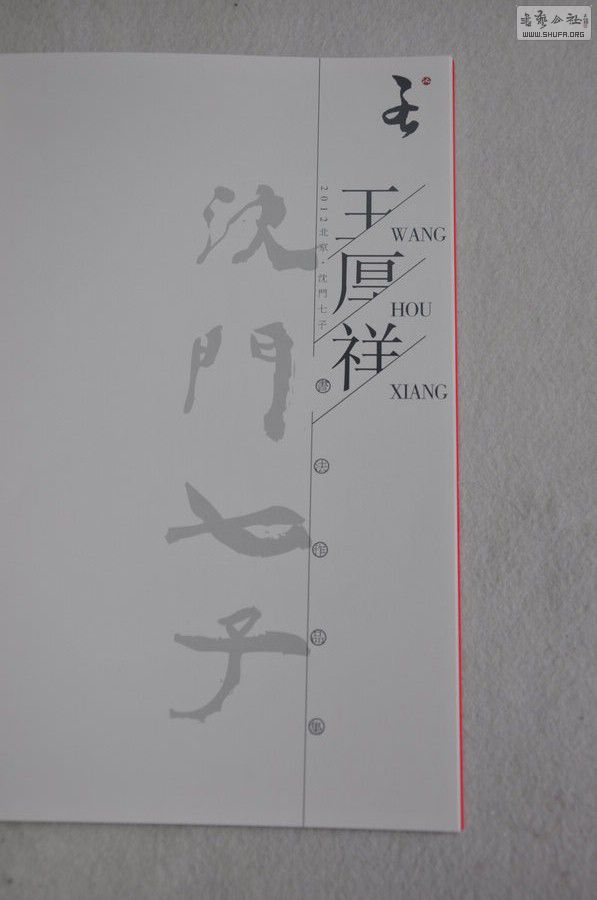 書藝公社
WWW.SHUFA.ORG
王厚祥
WANG
HOU
XIANG
2012北京·沈門七子
書法作品集
沈門七子